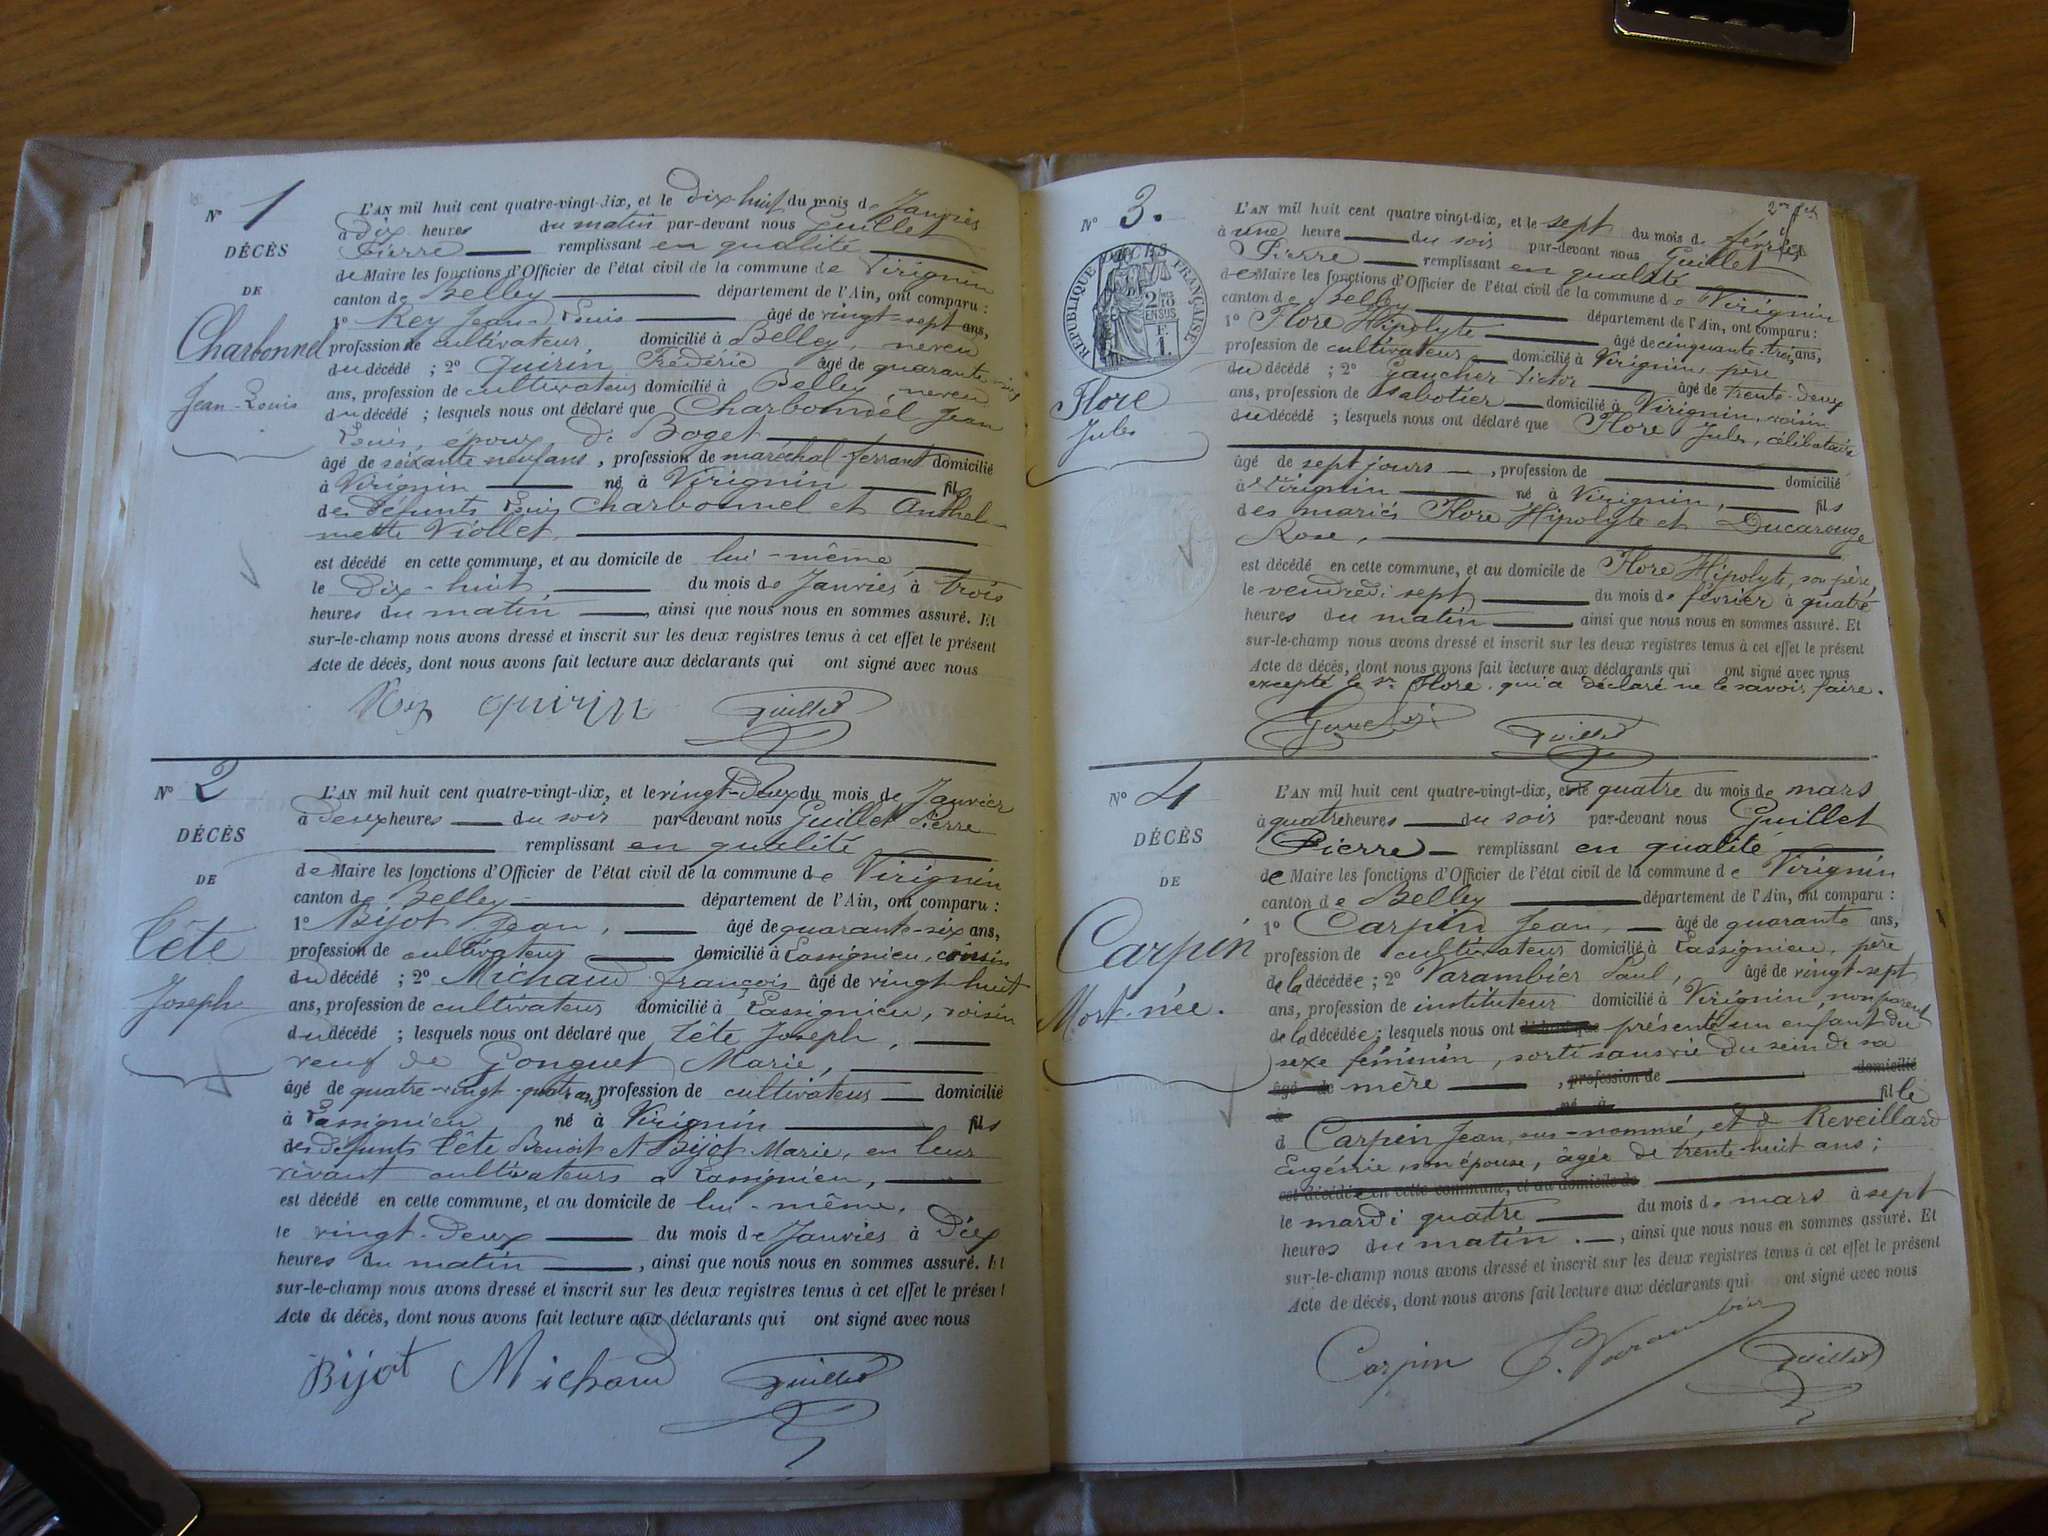 N° 1
DÉCÈS
DE
Charbonnel
Jean-Louis
L'AN mil huit cent quatre-vingt-dix, et le dix huit du mois de Janvier
à dix heures du matin par-devant nous Guillet
Pierre remplissant en qualité
de Maire les fonctions d'Officier de l'état civil de la commune de Virignin
canton de Belley département de l'Ain, ont comparu :
1° Rey Jean-Louis âgé de vingt-sept ans,
profession de cultivateur, domicilié à Belley, neveu
du décédé ; 2° Quirin Frédéric âgé de quarante
ans, profession de cultivateur domicilié à Belley neveu
du décédé ; lesquels nous ont déclaré que Charbonnel Jean
Louis, époux de Boget
âgé de soixante-neuf ans, profession de maréchal-ferrant domicilié
à Virignin né à Virignin fils
des défunts Louis Charbonnel et Anthel-
mette Viollet,
est décédé en cette commune, et au domicile de lui-même
le dix-huit du mois de Janvier à trois
heures du matin, ainsi que nous nous en sommes assuré. Et
sur-le-champ nous avons dressé et inscrit sur les deux registres tenus à cet effet le présent
Acte de décès, dont nous avons fait lecture aux déclarants qui ont signé avec nous
Rey quirin Guillet
N° 2
DÉCÈS
DE
Tête
Joseph
L'AN mil huit cent quatre-vingt-dix, et le vingt-deux du mois de Janvier
à deux heures du soir par-devant nous Guillet Pierre
remplissant en qualité
de Maire les fonctions d'Officier de l'état civil de la commune de Virignin
canton de Belley département de l'Ain, ont comparu :
1° Bijot Jean, âgé de quarante-six ans,
profession de cultivateur domicilié à Lassignieu, voisin
du décédé ; 2° Michaud françois âgé de vingt huit
ans, profession de cultivateur domicilié à Lassignieu, voisin
du décédé ; lesquels nous ont déclaré que Tête Joseph,
veuf de Gonguet Marie,
âgé de quatre-vingt-quatre ans, profession de cultivateur domicilié
à Lassignieu né à Virignin fils
des défunts Tête Benoit et Bijot Marie, en leur
vivant cultivateurs à Lassignieu,
est décédé en cette commune, et au domicile de lui-même.
le vingt-deux du mois de Janvier à dix
heures du matin, ainsi que nous nous en sommes assuré. Et
sur-le-champ nous avons dressé et inscrit sur les deux registres tenus à cet effet le présent
Acte de décès, dont nous avons fait lecture aux déclarants qui ont signé avec nous
Bijot Michaud Guillet
N° 3.
DÉCÈS
RÉPUBLIQUE FRANÇAISE
2/10 EN SUS
Flore
Jules
L'AN mil huit cent quatre vingt-dix, et le sept du mois de février
à une heure du soir par-devant nous Guillet
Pierre remplissant en qualité
de Maire les fonctions d'Officier de l'état civil de la commune de Virignin
canton de Belley département de l'Ain, ont comparu :
1° Flore Hipolyte âgé de cinquante-trois ans,
profession de cultivateur domicilié à Virignin, père
du décédé ; 2° Gaucher Victor âgé de trente-deux
ans, profession de sabotier domicilié à Virignin, voisin
du décédé ; lesquels nous ont déclaré que Flore Jules, célibataire
âgé de sept jours, profession de domicilié
à Virignin né à Virignin, fils
des mariés Flore Hipolyte et Ducarouge
Rose,
est décédé en cette commune, et au domicile de Flore Hipolyte, son père,
le vendredi sept du mois de février à quatre
heures du matin ainsi que nous nous en sommes assuré. Et
sur-le-champ nous avons dressé et inscrit sur les deux registres tenus à cet effet le présent
Acte de décès, dont nous avons fait lecture aux déclarants qui ont signé avec nous
excepté le sr Flore qui a déclaré ne le savoir faire.
Gaucher Guillet
N° 4
DÉCÈS
DE
Carpin
Mort-née.
L'AN mil huit cent quatre-vingt-dix, et le quatre du mois de mars
à quatre heures du soir par-devant nous Guillet
Pierre remplissant en qualité
de Maire les fonctions d'Officier de l'état civil de la commune de Virignin
canton de Belley département de l'Ain, ont comparu :
1° Carpin Jean, âgé de quarante ans,
profession de cultivateur domicilié à Lassignieu, père
de la décédée ; 2° Varambier Paul, âgé de vingt-sept
ans, profession de instituteur domicilié à Virignin, non parent
de la décédée ; lesquels nous ont présenté un enfant du
sexe féminin, sorti sans vie du sein de sa
âgé de mère, profession de domicilié
à né à fille
d Carpin Jean, sus-nommé, et de Reveillard
Eugénie, son épouse, âgée de trente-huit ans ;
est décédée en cette commune, et au domicile de
le mardi quatre du mois de mars à sept
heures du matin, ainsi que nous nous en sommes assuré. Et
sur-le-champ nous avons dressé et inscrit sur les deux registres tenus à cet effet le présent
Acte de décès, dont nous avons fait lecture aux déclarants qui ont signé avec nous
Carpin P. Varambier Guillet